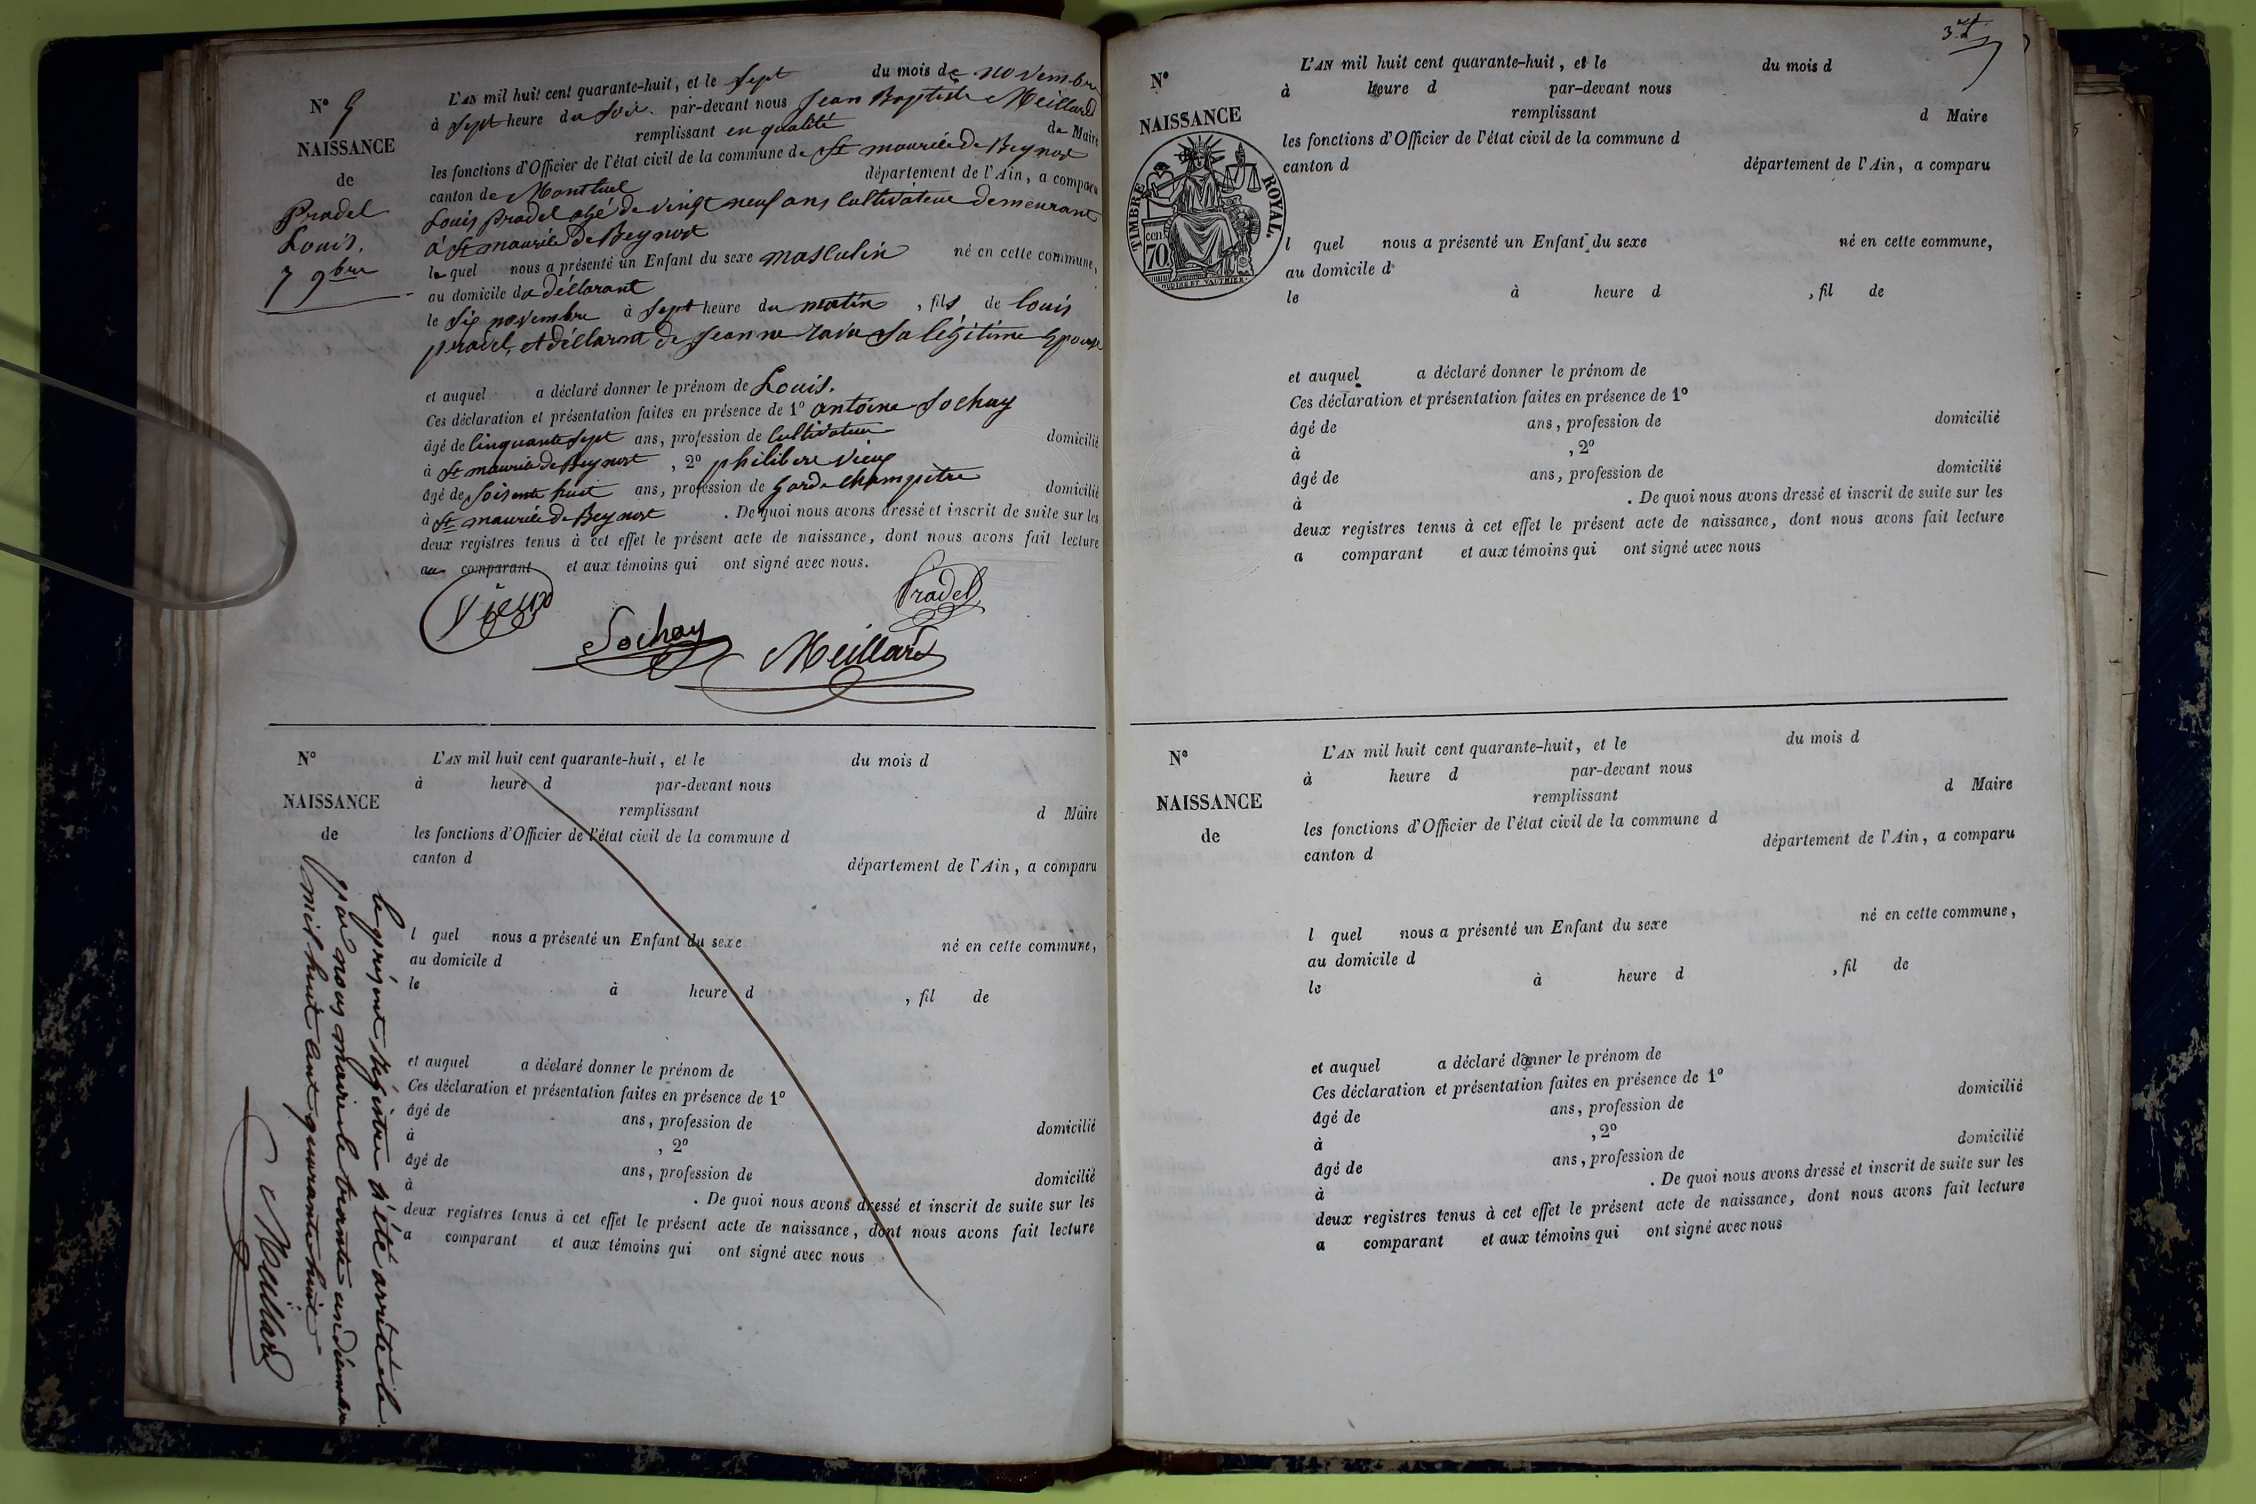 N° 9
NAISSANCE
de
Pradel
Louis.
7 9bre
L'AN mil huit cent quarante-huit, et le Sept du mois de novembre
à Sept heure du Soir. par-devant nous Jean Baptiste Meillard
remplissant en qualité de Maire
les fonctions d'Officier de l'état civil de la commune de St maurice de Beynost
canton de Montluel département de l'Ain, a comparu
Louis Pradel agé de vingt neuf ans Cultivateur demeurant
à St maurice de Beynost
le quel nous a présenté un Enfant du sexe masculin né en cette commune,
au domicile du déclarant
le Six novembre à Sept heure du matin , fils de Louis
pradel, et déclarant de Jeanne Sa légitime Epouse
et auquel a déclaré donner le prénom de Louis.
Ces déclaration et présentation faites en présence de 1° antoine Sochay
âgé de Cinquante Sept ans, profession de Cultivateur domicilié
à St maurice de Beynost , 2° philibert vieux
âgé de Soisente huit ans, profession de garde champêtre domicilié
à St maurice de Beynost . De quoi nous avons dressé et inscrit de suite sur les
deux registres tenus à cet effet le présent acte de naissance, dont nous avons fait lecture
au comparant et aux témoins qui ont signé avec nous.
Vieux
Pradel
Sochay
Meillard
N°
NAISSANCE
de
L'AN mil huit cent quarante-huit, et le du mois d
à heure d par-devant nous
remplissant d Maire
les fonctions d'Officier de l'état civil de la commune d
canton d département de l'Ain, a comparu
l quel nous a présenté un Enfant du sexe né en cette commune,
au domicile d
le à heure d , fil de
et auquel a déclaré donner le prénom de
Ces déclaration et présentation faites en présence de 1°
âgé de ans, profession de domicilié
à , 2°
âgé de ans, profession de domicilié
à . De quoi nous avons dressé et inscrit de suite sur les
deux registres tenus à cet effet le présent acte de naissance, dont nous avons fait lecture
a comparant et aux témoins qui ont signé avec nous
le présent Régistre à été arrêté le
par nous maire le trente un décembre
mil huit cent quarante huit
Meillard
N°
NAISSANCE
TIMBRE ROYAL.
cen
70.
L'AN mil huit cent quarante-huit, et le du mois d
à heure d par-devant nous
remplissant d Maire
les fonctions d'Officier de l'état civil de la commune d
canton d département de l'Ain, a comparu
l quel nous a présenté un Enfant du sexe né en cette commune,
au domicile d
le à heure d , fil de
et auquel a déclaré donner le prénom de
Ces déclaration et présentation faites en présence de 1°
âgé de ans, profession de domicilié
à , 2°
âgé de ans, profession de domicilié
à . De quoi nous avons dressé et inscrit de suite sur les
deux registres tenus à cet effet le présent acte de naissance, dont nous avons fait lecture
a comparant et aux témoins qui ont signé avec nous
N°
NAISSANCE
de
L'AN mil huit cent quarante-huit, et le du mois d
à heure d par-devant nous
remplissant d Maire
les fonctions d'Officier de l'état civil de la commune d
canton d département de l'Ain, a comparu
l quel nous a présenté un Enfant du sexe né en cette commune,
au domicile d
le à heure d , fil de
et auquel a déclaré donner le prénom de
Ces déclaration et présentation faites en présence de 1°
âgé de ans, profession de domicilié
à , 2°
âgé de ans, profession de domicilié
à . De quoi nous avons dressé et inscrit de suite sur les
deux registres tenus à cet effet le présent acte de naissance, dont nous avons fait lecture
a comparant et aux témoins qui ont signé avec nous